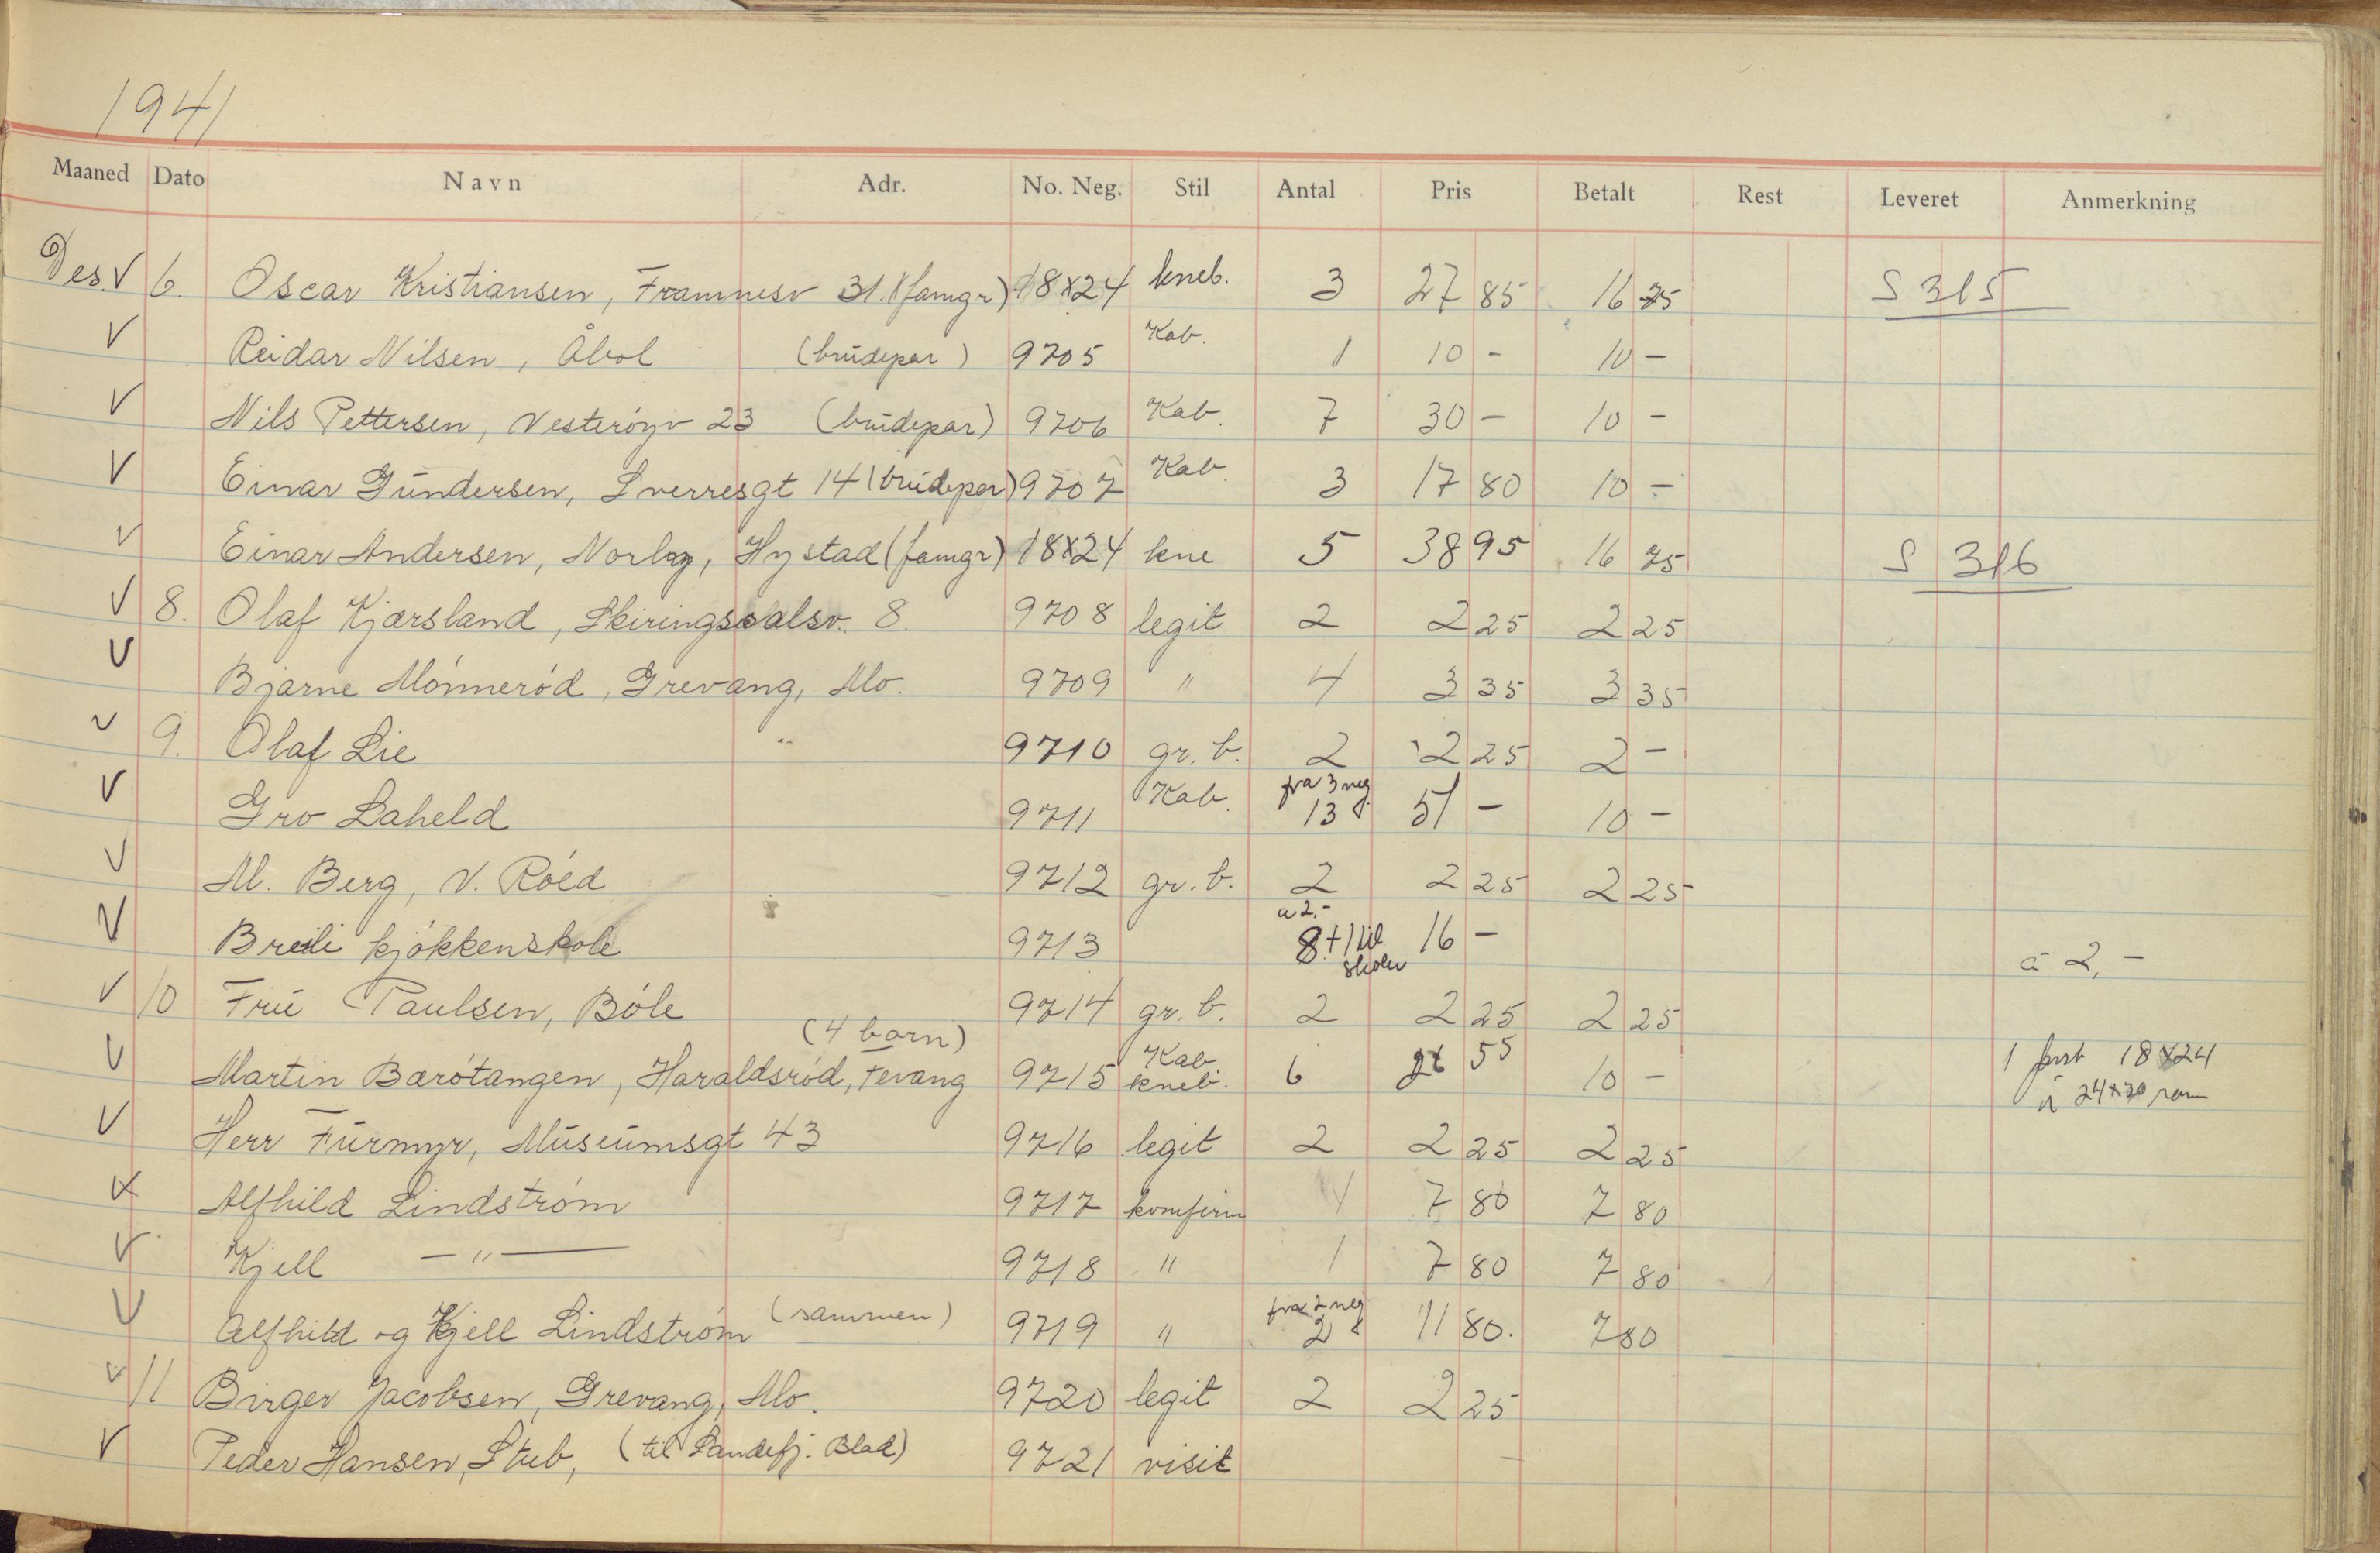 1941
Maaned Dato Navn Adr. No. Neg. Stil Antal Pris Betalt Rest Leveret Anmerkning
Des. V 6. Oscar Kristiansen, Framnesv 31. (famgr) 18x24 kneb. 3 27 85 16 75 S 315
V Reidar Nilsen, Åbol (brudepar) 9705 Kab. 1 10 - 10 -
V Nils Pettersen, Vesterøyv 23 (brudepar) 9706 Kab. 7 30 - 10 -
V Einar Gundersen, Sverresgt 14 (brudepar) 9707 Kab. 3 17 80 10 -
V Einar Andersen, Hystad (famgr) 18x24 kne 5 38 95 16 75 S 316
V 8. Olaf Kjærsland, Skiringssalsv. 8. 9708 legit 2 2 25 2 25
V Bjarne Mønnerød, Grevang, Mo. 9709 " 4 3 35 3 35
V 9. Olaf Lie 9710 gr. b. 2 2 25 2 -
V Gro Laheld 9711 Kab. fra 3 neg. 13 51 - 10 -
V M. Berg, V. Røed 9712 gr. b. 2 2 25 2 25
V Breili kjøkkenskole 9713 a 2.- 8 + 1 til skolen 16 - à 2,-
V 10 Fru Paulsen, Bøle 9714 gr. b. 2 2 25 2 25
(4 barn)
V Martin Bærøtangen, Haraldsrød, Tevang 9715 Kab kneb. 6 26 55 10 - 1 forst 18x24
à 24x30 ram
V Herr Furmyr, Museumsgt 43 9716 legit 2 2 25 2 25
V Alfhild Lindstrøm 9717 komfirm 1 7 80 7 80
V Kjell - " - 9718 " 1 7 80 7 80
V Alfhild og Kjell Lindstrøm (sammen) 9719 " fra 2 neg 2 11 80. 7 80
V 11 Birger Jacobsen, Grevang, Mo. 9720 legit 2 2 25
V Peder Hansen, Stub, (til Sandefj. Blad) 9721 visit -